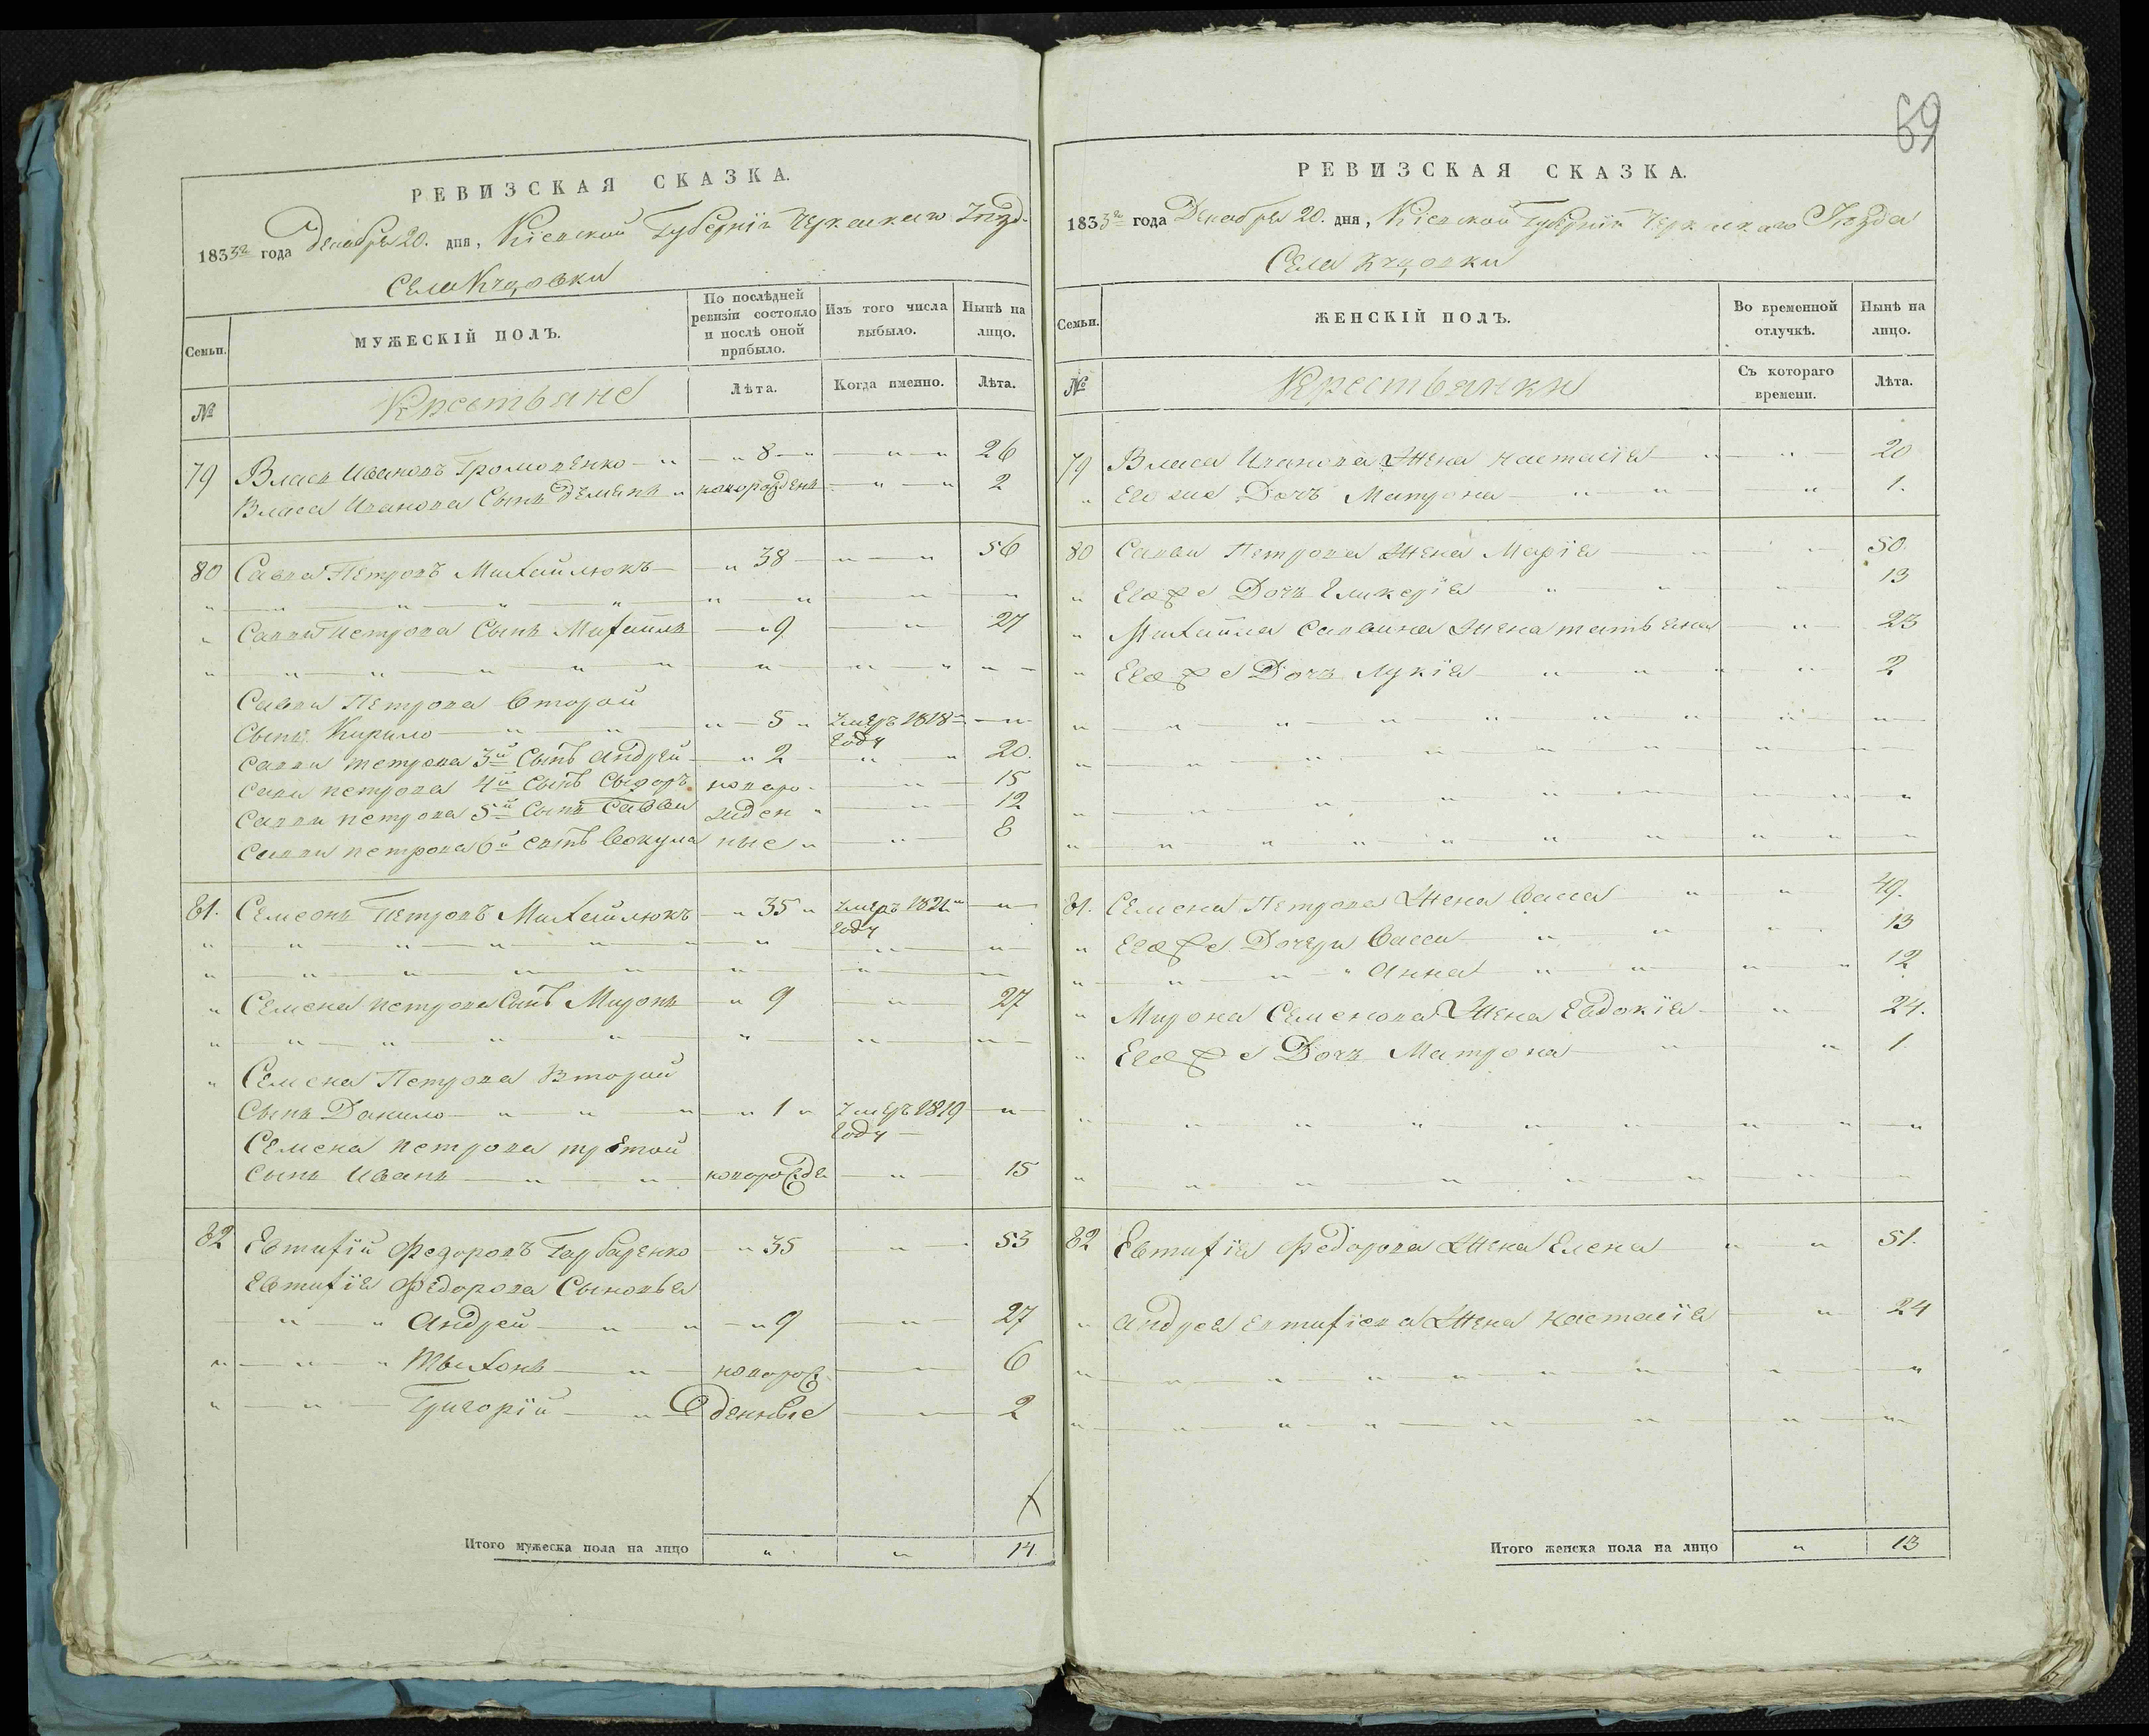 РЕВИЗСКАЯ СКАЗКА.
1833го года Декабря 20. дня, Кіевской Губерніи Черкаскаго Уезд.
Села
Семьи.
МУЖЕСКІЙ ПОЛЪ.
По послѣдней ревизіи состояло и послѣ оной прибыло.
Изъ того числа выбыло.
Нынѣ на лицо.
№
Крестьяне
Лѣта.
Когда именно.
Лѣта.
79 Власъ Ивановъ Громоденко 8 26
Власа Иванова Сынъ Демянъ новорожденъ 2
80 Савва Петровъ Михайлюкъ 38 56
Саввы Петрова Сынъ Михаилъ 9 27
Саввы Петрова Второй
Сынъ Кирило 5 Умеръ 1818го
году
Саввы петрова 3й Сынъ андрей 2 20.
Савы петрова 4й Сынъ Сыдоръ новоро 15
Саввы петрова 5й Сынъ Савви жден 12
Саввы петрова 6й сынъ Вокула ные 8
81. Семенъ Петровъ Михайлюкъ 35 Умеръ 1821го
году
Семена петрова Сынъ Миронъ 9 27
Семена Петрова Второй
Сынъ Данило 1 Умеръ 1819
году
Семена петрова третой
сынъ Иванъ новорожде 15
82 Евтифій Федоровъ Гарбаренко 35 53
Евтифія Федорова Сыновья
андрей 9 27
Тыхонъ новорож 6
Григорій денные 2
Итого мужеска пола на лицо 14
69
РЕВИЗСКАЯ СКАЗКА.
1833го года Декабря 20. дня, Кіевской Губерніи Черкаскаго Уезда
Села
Семьи.
ЖЕНСКІЙ ПОЛЪ.
Во временной отлучкѣ.
Нынѣ на лицо.
№
Крестьянки
Съ котораго времени.
Лѣта.
79 Власа Иванова Жена настасія 20
Его же Дочъ Матрона 1.
80 Саввы Петрова Жена Марія 50.
Его же Дочъ Гликерія 13
Михайла Саввина Жена татьяна 23
Его же Дочъ Лукія 2
81. Семена Петрова Жена Васса 49.
Его же Дочери Васса 13
Анна 12
Мирона Семенова Жена Евдокія 24.
Его же Дочъ Матрона 1
82 Евтифія Федорова Жена Елена 51.
андрея евтифіева Жена настасія 24
Итого женска пола на лицо 13